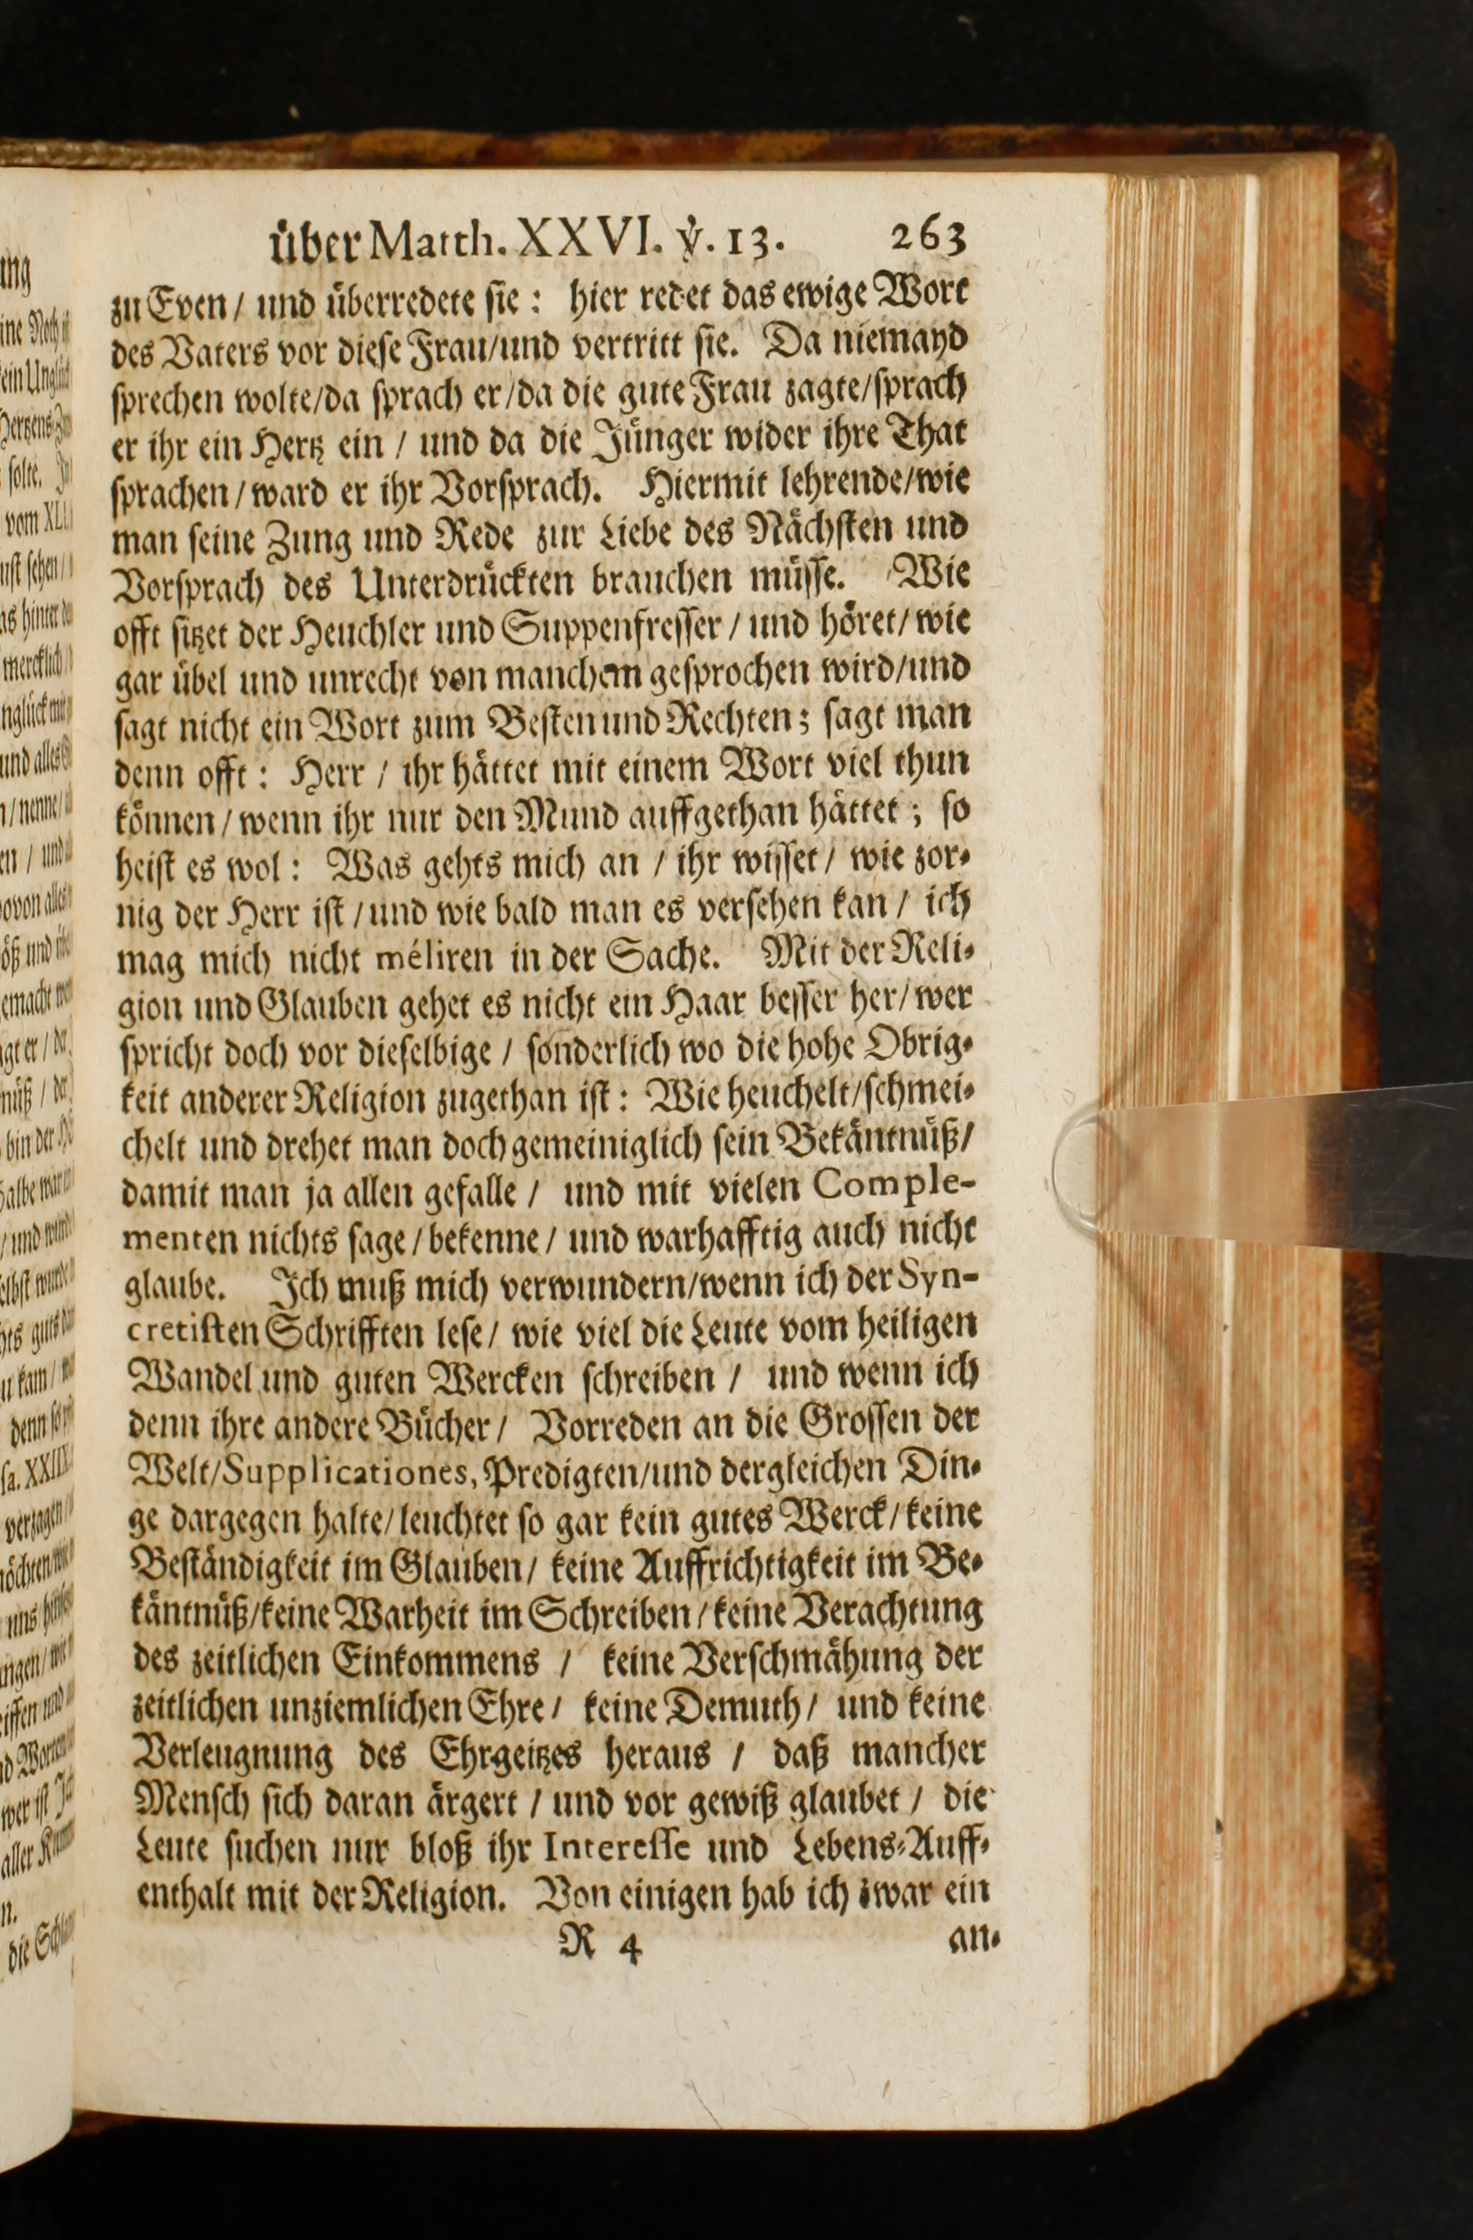 über Matth. XXVI. ℣. 13. 263
zu Even / und überredete sie : hier redet das ewige Wort
des Vaters vor diese Frau/und vertritt sie. Da niemand
sprechen wolte/da sprach er/da die gute Frau zagte/sprach
er ihr ein Hertz ein / und da die Jünger wider ihre That
sprachen/ward er ihr Vorsprach. Hiermit lehrende/wie
man seine Zung und Rede zur Liebe des Nächsten und
Vorsprach des Unterdrückten brauchen müsse. Wie
offt sitzet der Heuchler und Suppenfresser / und höret/wie
gar übel und unrecht von manchem gesprochen wird/und
sagt nicht ein Wort zum Besten und Rechten; sagt man
denn offt : Herr / ihr hättet mit einem Wort viel thun
können/wenn ihr nur den Mund auffgethan hättet ; so
heist es wol : Was gehts mich an / ihr wisset/ wie zor-
nig der Herr ist /und wie bald man es versehen kan / ich
mag mich nicht méliren in der Sache. Mit der Reli-
gion und Glauben gehet es nicht ein Haar besser her/wer
spricht doch vor dieselbige / sonderlich wo die hohe Obrig-
keit anderer Religion zugethan ist : Wie heuchelt/schmei-
chelt und drehet man doch gemeiniglich sein Bekäntnüß/
damit man ja allen gefalle / und mit vielen Comple-
menten nichts sage/bekenne/ und warhafftig auch nicht
glaube. Ich muß mich verwundern/wenn ich der Syn-
cretisten Schrifften lese/ wie viel die Leute vom heiligen
Wandel und guten Wercken schreiben / und wenn ich
denn ihre andere Bücher/ Vorreden an die Grossen der
Welt/Supplicationes, Predigten/und dergleichen Din-
ge dargegen halte/leuchtet so gar kein gutes Werck/keine
Beständigkeit im Glauben/ keine Auffrichtigkeit im Be-
käntnüß/keine Warheit im Schreiben/keine Verachtung
des zeitlichen Einkommens / keine Verschmähung der
zeitlichen unziemlichen Ehre/ keine Demuth/ und keine
Verleugnung des Ehrgeitzes heraus / daß mancher
Mensch sich daran ärgert / und vor gewiß glaubet / die
Leute suchen nur bloß ihr Interesse und Lebens-Auff-
enthalt mit der Religion. Von einigen hab ich zwar ein
R 4 an-